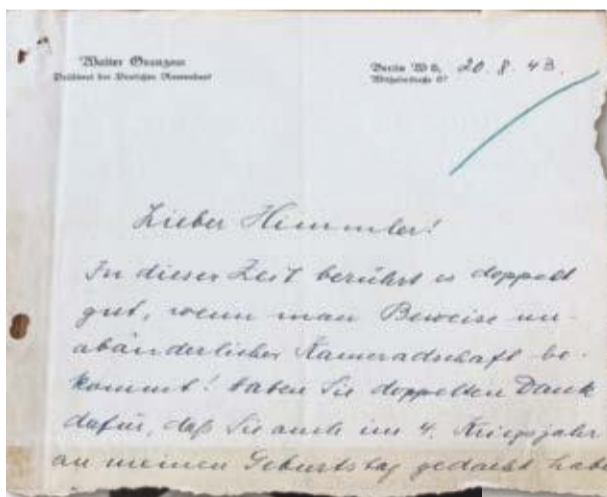 Walter Granzow
Präsident der Deutschen Rentenbank
Berlin W 8, 20. 8. 43.
Lieber Himmler!
In dieser Zeit berührt es doppelt
gut, wenn man Beweise un-
abänderlicher Kameradschaft be-
kommt! Haben Sie doppelten Dank
dafür, daß Sie auch im 4. Kriegsjahr
an meinen Geburtstag gedacht habe